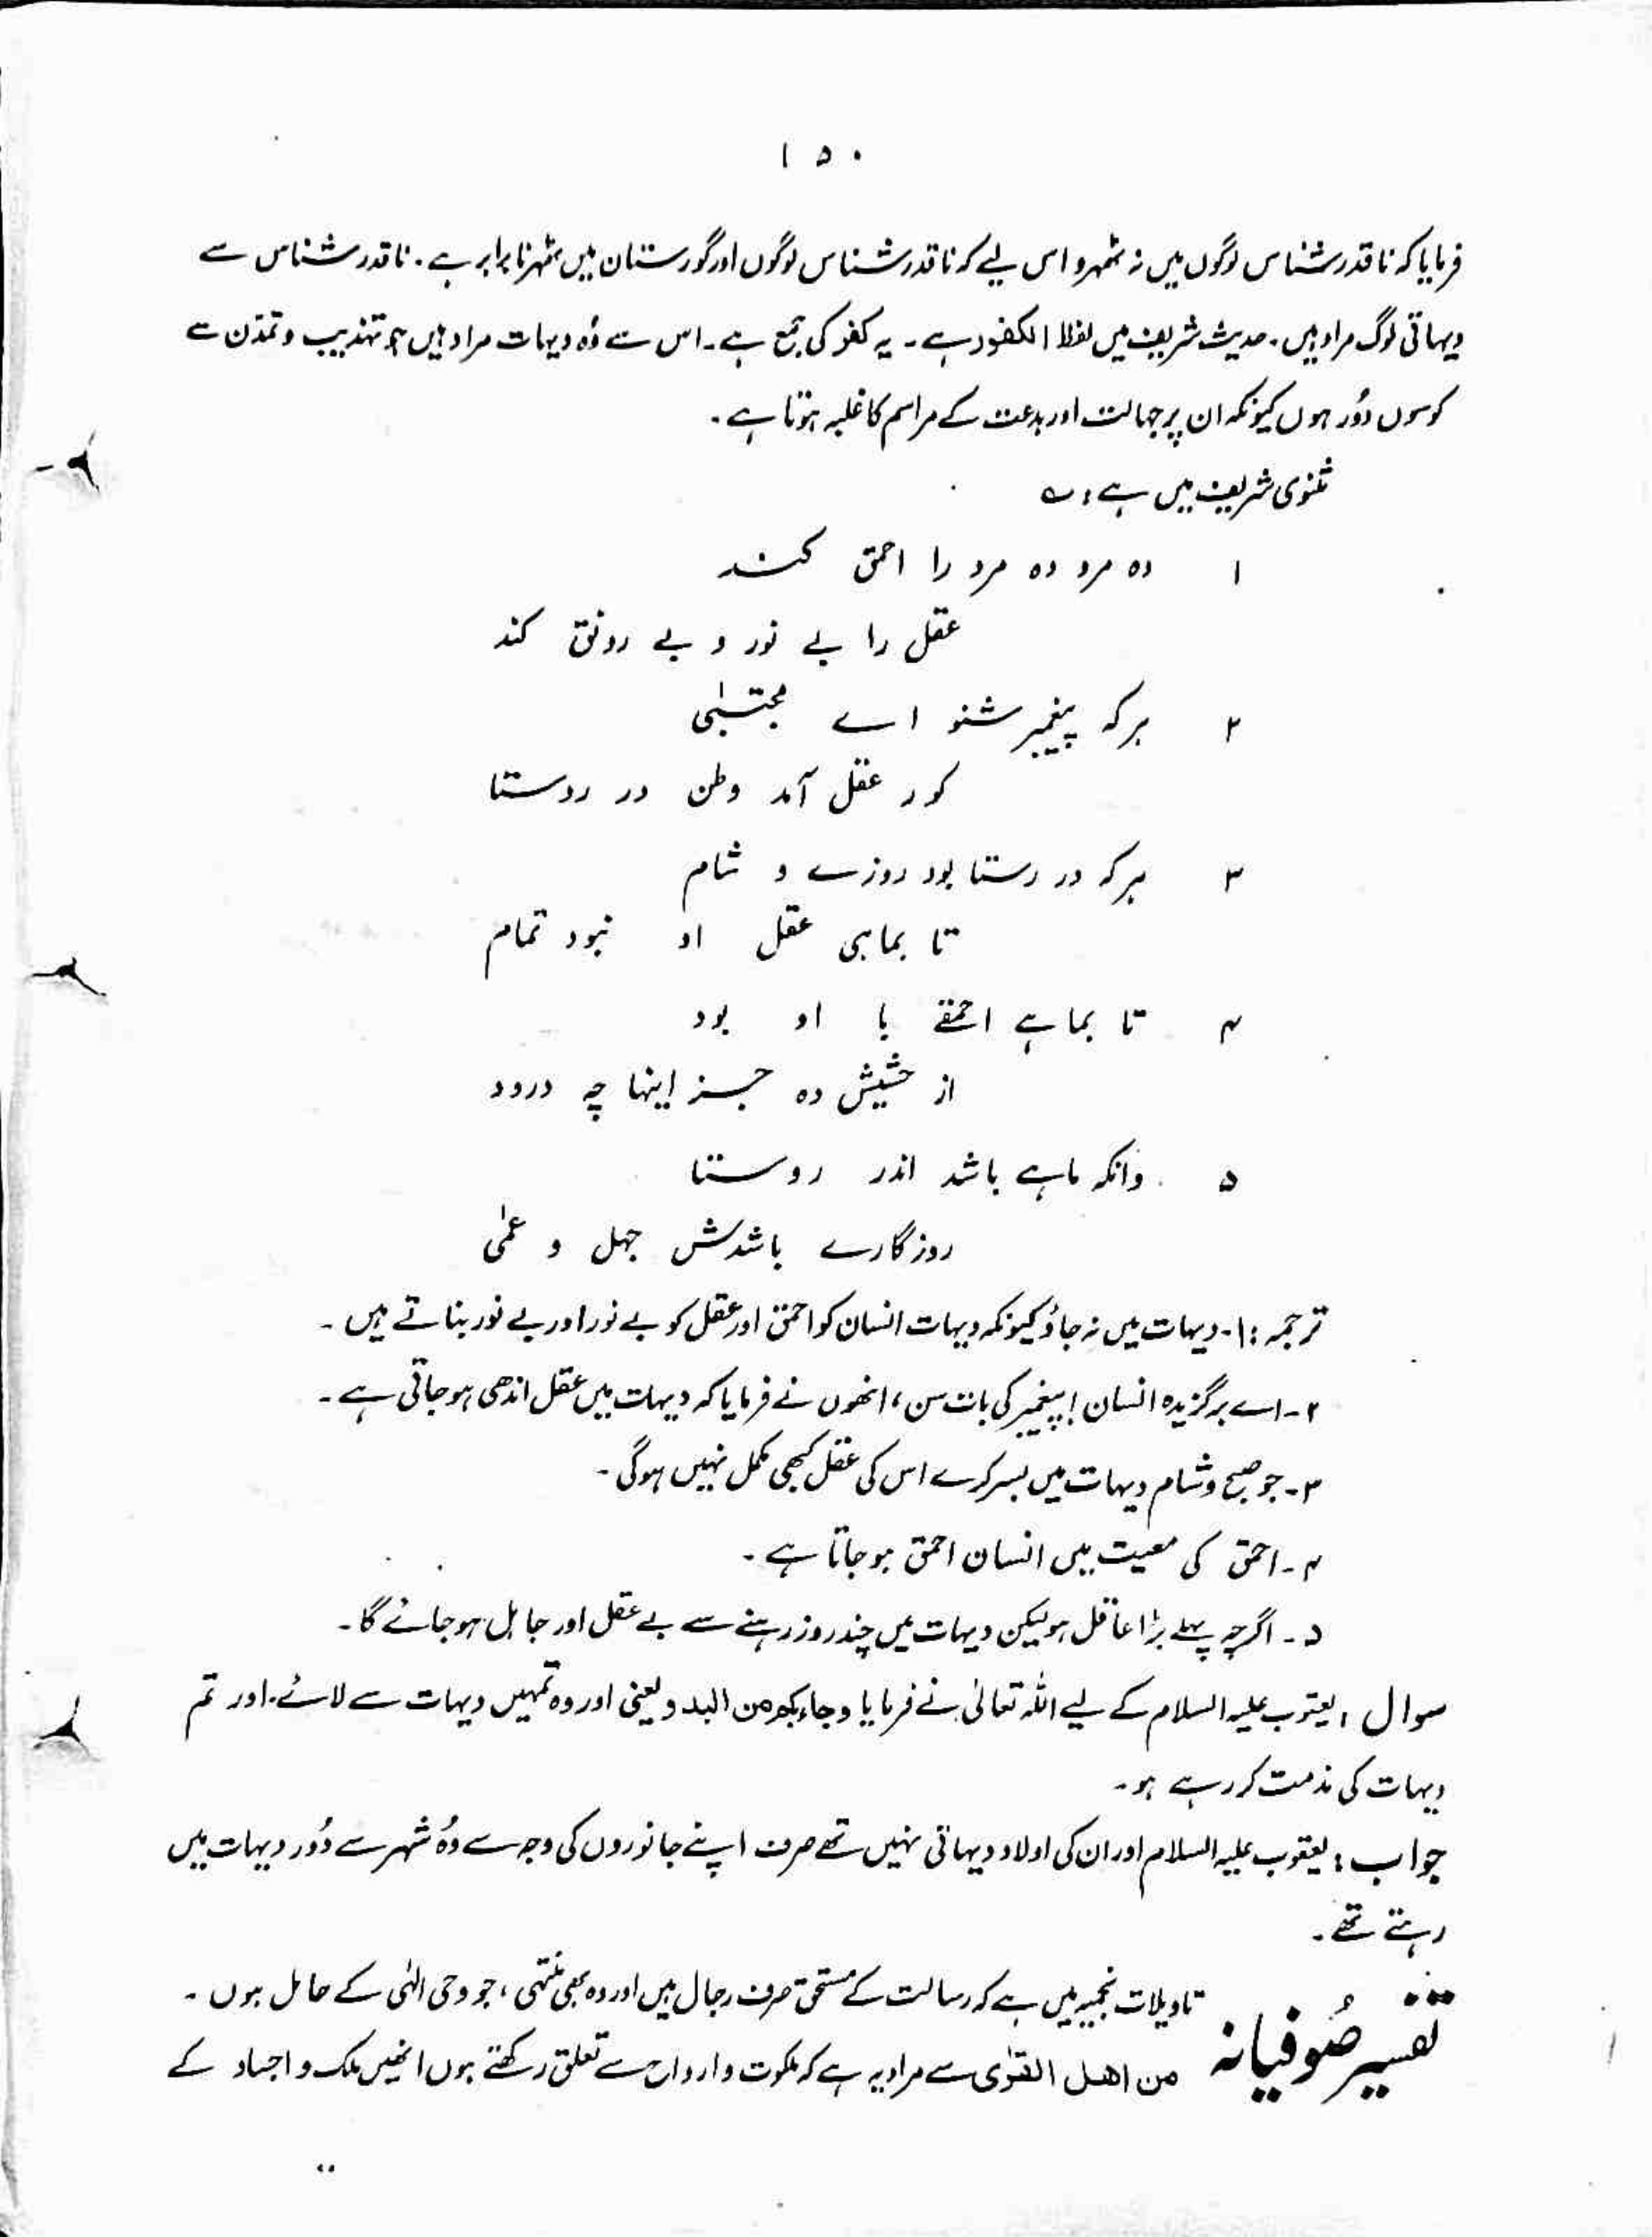 ۱۵۰
فرمایا کہ ناقدر شناس لوگوں میں نہ ٹھہرو اس لیے کہ ناقدر شناس لوگوں اور گورستان میں ٹھہرنا برابر ہے۔ ناقدر شناس سے
دیہاتی لوگ مراد ہیں۔ حدیث شریف میں لفظ الکفور ہے۔ یہ کفر کی جمع ہے۔ اس سے وُہ دیہات مراد ہیں جو تہذیب و تمدّن سے
کوسوں دُور ہوں کیونکہ ان پر جہالت اور بدعت کے مراسم کا غلبہ ہوتا ہے۔
مثنوی شریف میں ہے: ؎
۱ دہ مرو دہ مرد را احمق کند
عقل را بے نور و بے رونق کند
۲ ہرکہ پیغمبر شنو اے مجتبٰی
کور عقل آمد وطن در روستا
۳ ہرکہ در رستا بود روزے و شام
تا بماہی عقل او نبود تمام
۴ تا بماہے احمقے با او بود
از حشیش دہ جز اینہا چہ درود
۵ وانکہ ماہے باشد اندر روستا
روزگارے باشدش جہل و عمٰی
ترجمہ: ۱۔ دیہات میں نہ جاؤ کیونکہ دیہات انسان کو احمق اور عقل کو بے نور اور بے نور بناتے ہیں۔
۲۔ اے برگزیدہ انسان! پیغمبر کی بات سن، انھوں نے فرمایا کہ دیہات میں عقل اندھی ہو جاتی ہے۔
۳۔ جو صبح و شام دیہات میں بسر کرے اس کی عقل کبھی مکمل نہیں ہوگی۔
۴۔ احمق کی معیت میں انسان احمق ہو جاتا ہے۔
۵۔ اگرچہ پہلے بڑا عاقل ہو لیکن دیہات میں چند روز رہنے سے بے عقل اور جاہل ہو جائے گا۔
سوال: یعقوب علیہ السلام کے لیے اللہ تعالیٰ نے فرمایا وجاء بکم من البدو یعنی اور وہ تمہیں دیہات سے لائے۔ اور تم
دیہات کی مذمت کر رہے ہو۔
جواب: یعقوب علیہ السلام اور ان کی اولاد دیہاتی نہیں تھے صرف اپنے جانوروں کی وجہ سے وُہ شہر سے دُور دیہات میں
رہتے تھے۔
تفسیر صُوفیانہ تاویلات نجمیہ میں ہے کہ رسالت کے مستحق صرف رجال ہیں اور وہ بھی منتہی، جو وحی الٰہی کے حامل ہوں۔
من اھل القرٰی سے مراد یہ ہے کہ ملکوت و ارواح سے تعلق رکھتے ہوں انھیں ملک و اجساد کے